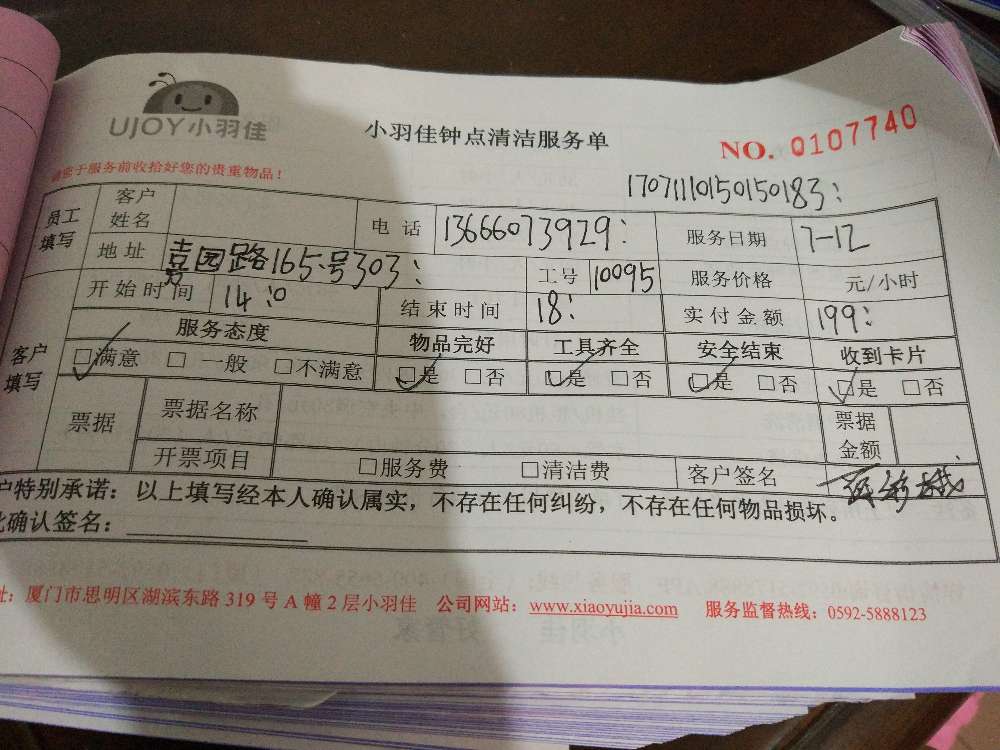 UJOY小羽佳
小羽佳钟点清洁服务单
NO. 0107740
请您于服务前收拾好您的贵重物品！
17071110150150183:
员工填写 客户姓名 电话 13666073929: 服务日期 7-12
地址 嘉园路165号303: 工号 10095 服务价格 元/小时
开始时间 14:0 结束时间 18: 实付金额 199:
客户填写 服务态度 物品完好 工具齐全 安全结束 收到卡片
☑满意 □一般 □不满意 ☑是 □否 ☑是 □否 ☑是 □否 ☑是 □否
票据 票据名称 票据金额
开票项目 □服务费 □清洁费 客户签名
户特别承诺：以上填写经本人确认属实，不存在任何纠纷，不存在任何物品损坏。
此确认签名：
址：厦门市思明区湖滨东路319号A幢2层小羽佳 公司网站：www.xiaoyujia.com 服务监督热线：0592-5888123